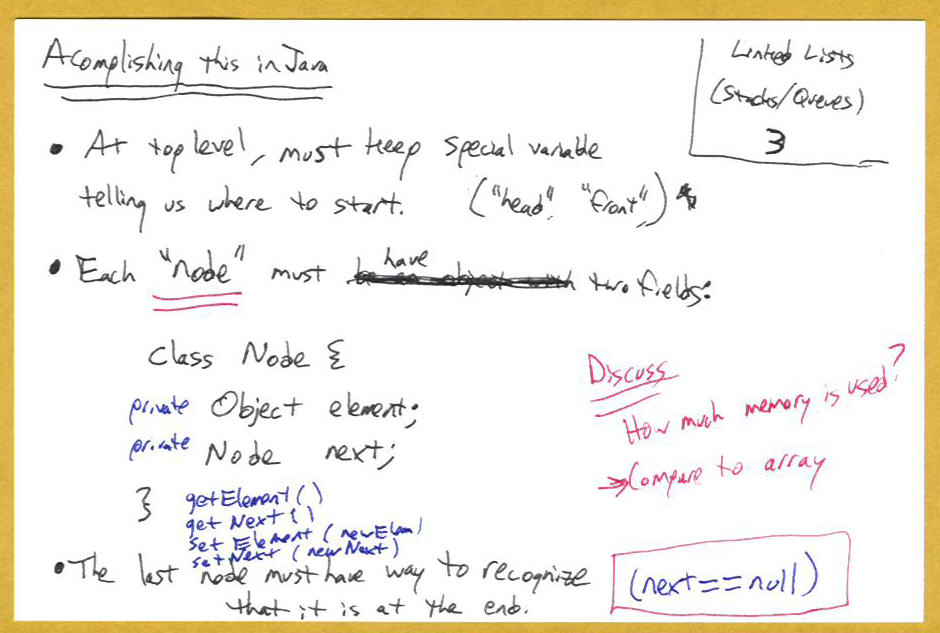 Acomplishing this in Java
Linked Lists
(Stacks/Queues)
3
• At top level, must keep special variable
telling us where to start. ("head", "front")
• Each "node" must have two fields:
class Node {
private Object element;
private Node next;
}
getElement()
getNext()
setElement(newElem)
setNext(newNext)
Discuss
How much memory is used?
→ Compare to array
• The last node must have way to recognize
that it is at the end.
(next==null)